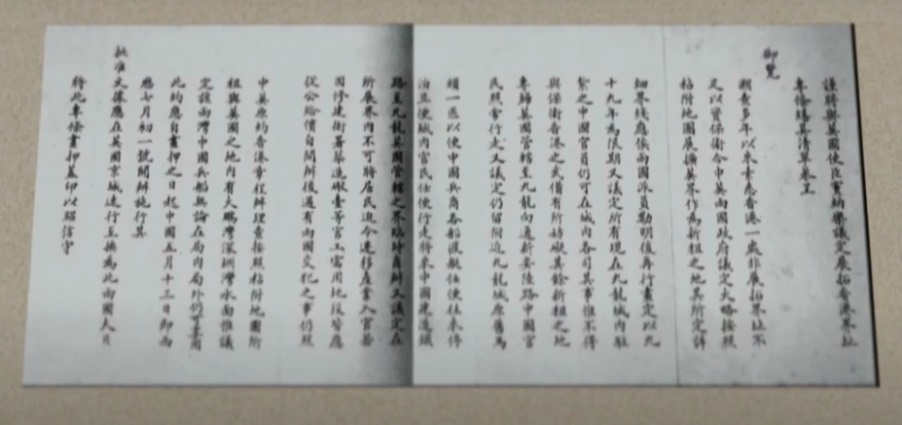 謹將與英國使臣竇納樂議定展拓香港界址
專條繕具清單恭呈
御覽
溯查多年以來素悉香港一處非展拓界址不
足以資保衛今中英兩國政府議定大略按照
粘附地圖展擴英界作為新租之地其所定詳
細界綫應俟兩國派員勘明後再行畫定以九
十九年為限期又議定所有現在九龍城內駐
紮之中國官員仍可在城內各司其事惟不得
與保衛香港之武備有所妨礙其餘新租之地
專歸英國管轄至九龍向通新安陸路中國官
民照常行走又議定仍留附近九龍城原舊馬
頭一區以便中國兵商各船渡艇任便往來停
泊且便城內官民任便行走將來中國建造鐵
路至九龍英國管轄之界臨時商辦又議定在
所展界內不可將居民迫令遷移產業入官若
因修建衙署築造礮臺等官工需用地段皆應
從公給價自開辦後遇有兩國交犯之事仍照
中英原約香港章程辦理查按照粘附地圖所
租與英國之地內有大鵬灣深圳灣水面惟議
定該兩灣中國兵船無論在局內局外仍可享用
此約應自畫押之日起中國五月十三日即西
歷七月初一號開辦施行其
批准文據應在英國京城速行互換為此兩國大員
將此專條畫押蓋印以昭信守